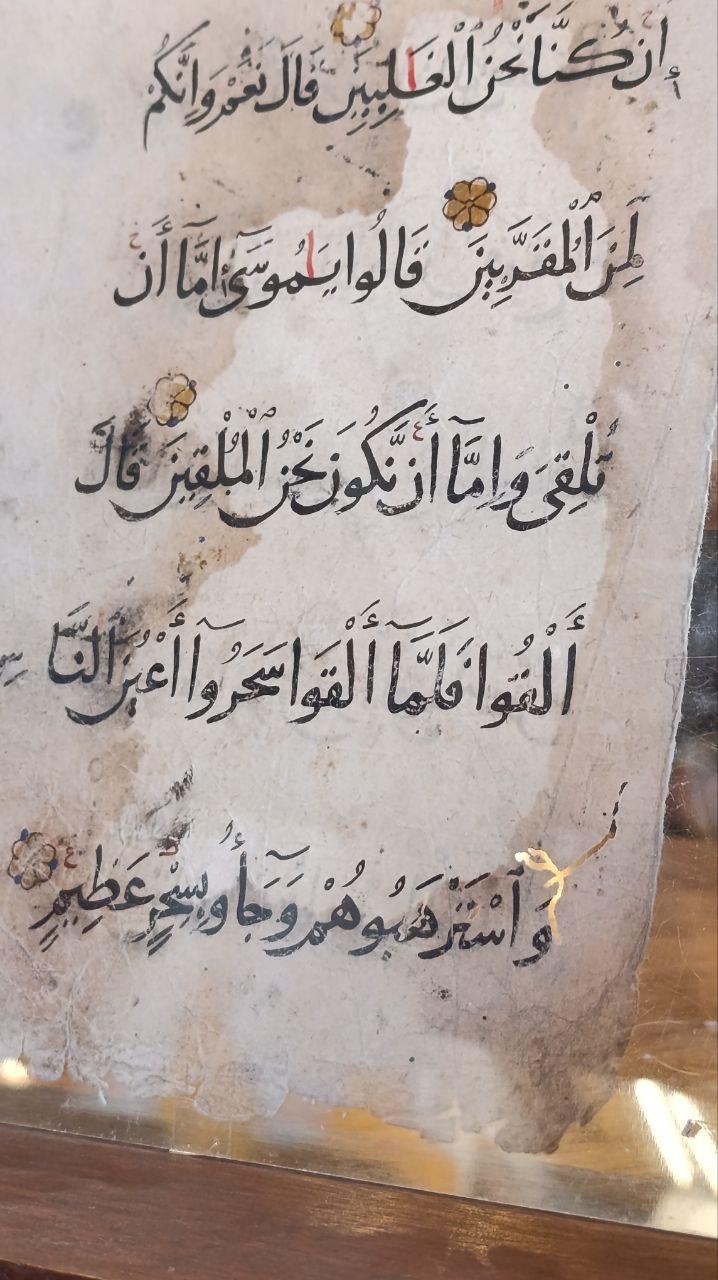 إِن كُنَّا نَحْنُ ٱلْغَـٰلِبِينَ قَالَ نَعَمْ وَإِنَّكُمْ
لَمِنَ ٱلْمُقَرَّبِينَ قَالُوا يَـٰمُوسَىٰٓ إِمَّآ أَن
تُلْقِىَ وَإِمَّآ أَن نَّكُونَ نَحْنُ ٱلْمُلْقِينَ قَالَ
أَلْقُوا فَلَمَّآ أَلْقَوْا سَحَرُوٓا أَعْيُنَ ٱلنَّاسِ
وَٱسْتَرْهَبُوهُمْ وَجَآءُو بِسِحْرٍ عَظِيمٍ